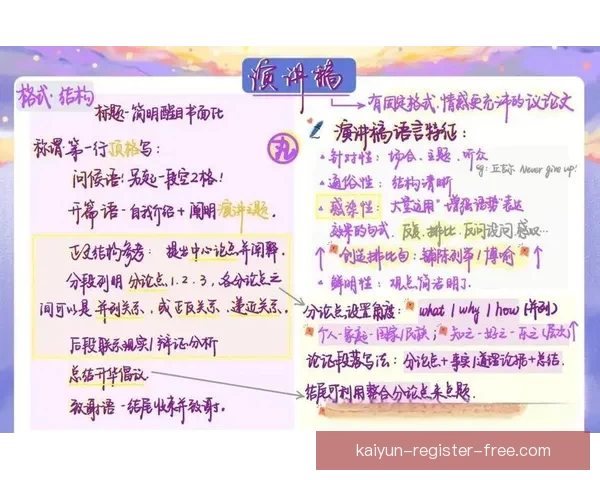 演讲稿
有固定格式.情感更充沛的议论文
格式·结构
标题-简明醒目书面化
称谓:第一行顶格写:
问候语:另起一段空2格!
开篇语-自我介绍+阐明演讲主题.
正文结构参考: 提出中心论点并阐释.
分段列明 分论点1.2.3,各分论点之
间可以是并列关系、或正反关系、递进关系.
后段联系现实/辩证分析
总结升华倡议
致谢语-结尾收束并致谢.
丸
演讲稿语言特征:
针对性: 场合、主题、听众
eg: 丘吉尔 Never give up!
通俗性: 结构清晰
感染性: 大量运用“增强语势”表达
效果的句式. 反复、排比、反问设问.感叹…
创造排比句: 铺陈列举/博喻
鲜明性: 观点简洁明了.
分论点设置角度: what/why/how(并列)
个人-家庭-国家/民族; 知之-好之-乐之(层次)
论证段落写法: 分论点+事实/道理论据+总结.
结尾可利用整合分论点来点题.
kaiyun-register-free.com